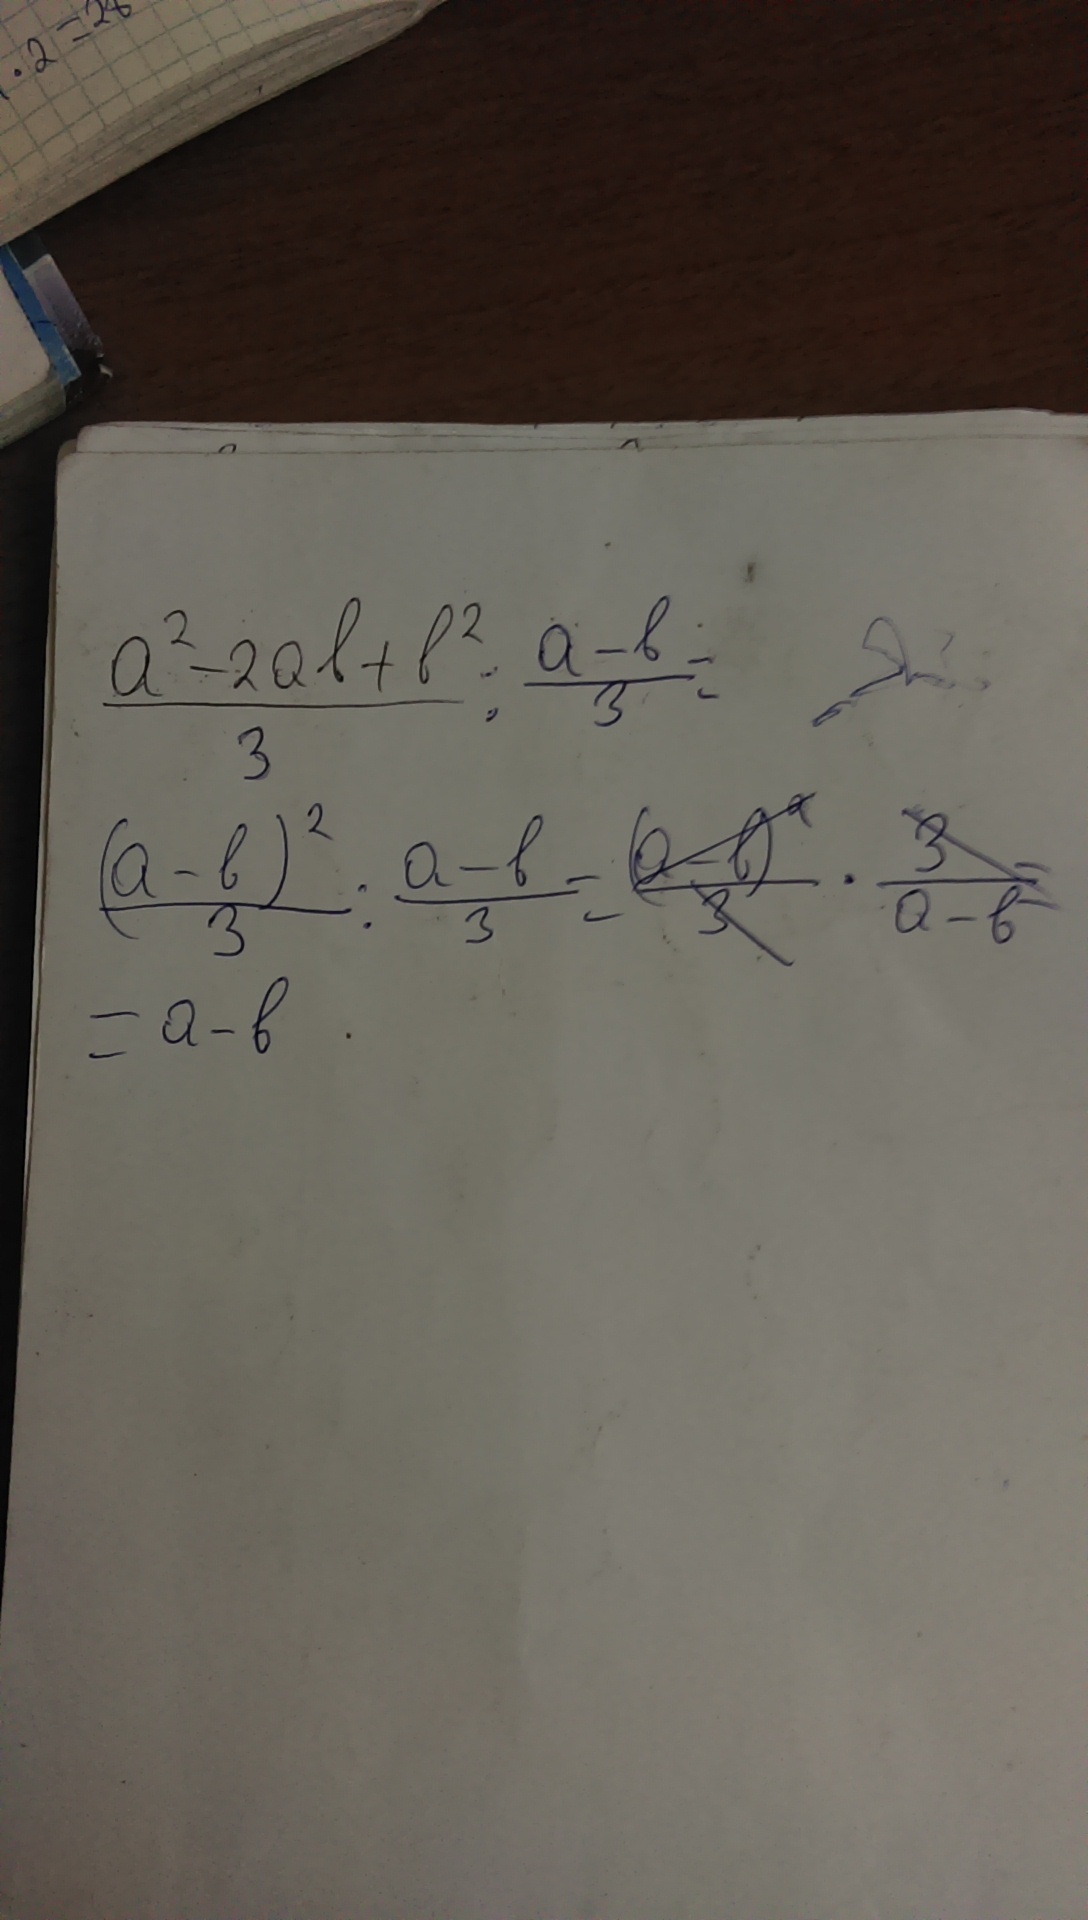 · 2 = 28
a² - 2ab + b² / 3 : a - b / 3 =
(a - b)² / 3 : a - b / 3 = (a - b)² / 3 · 3 / a - b =
= a - b